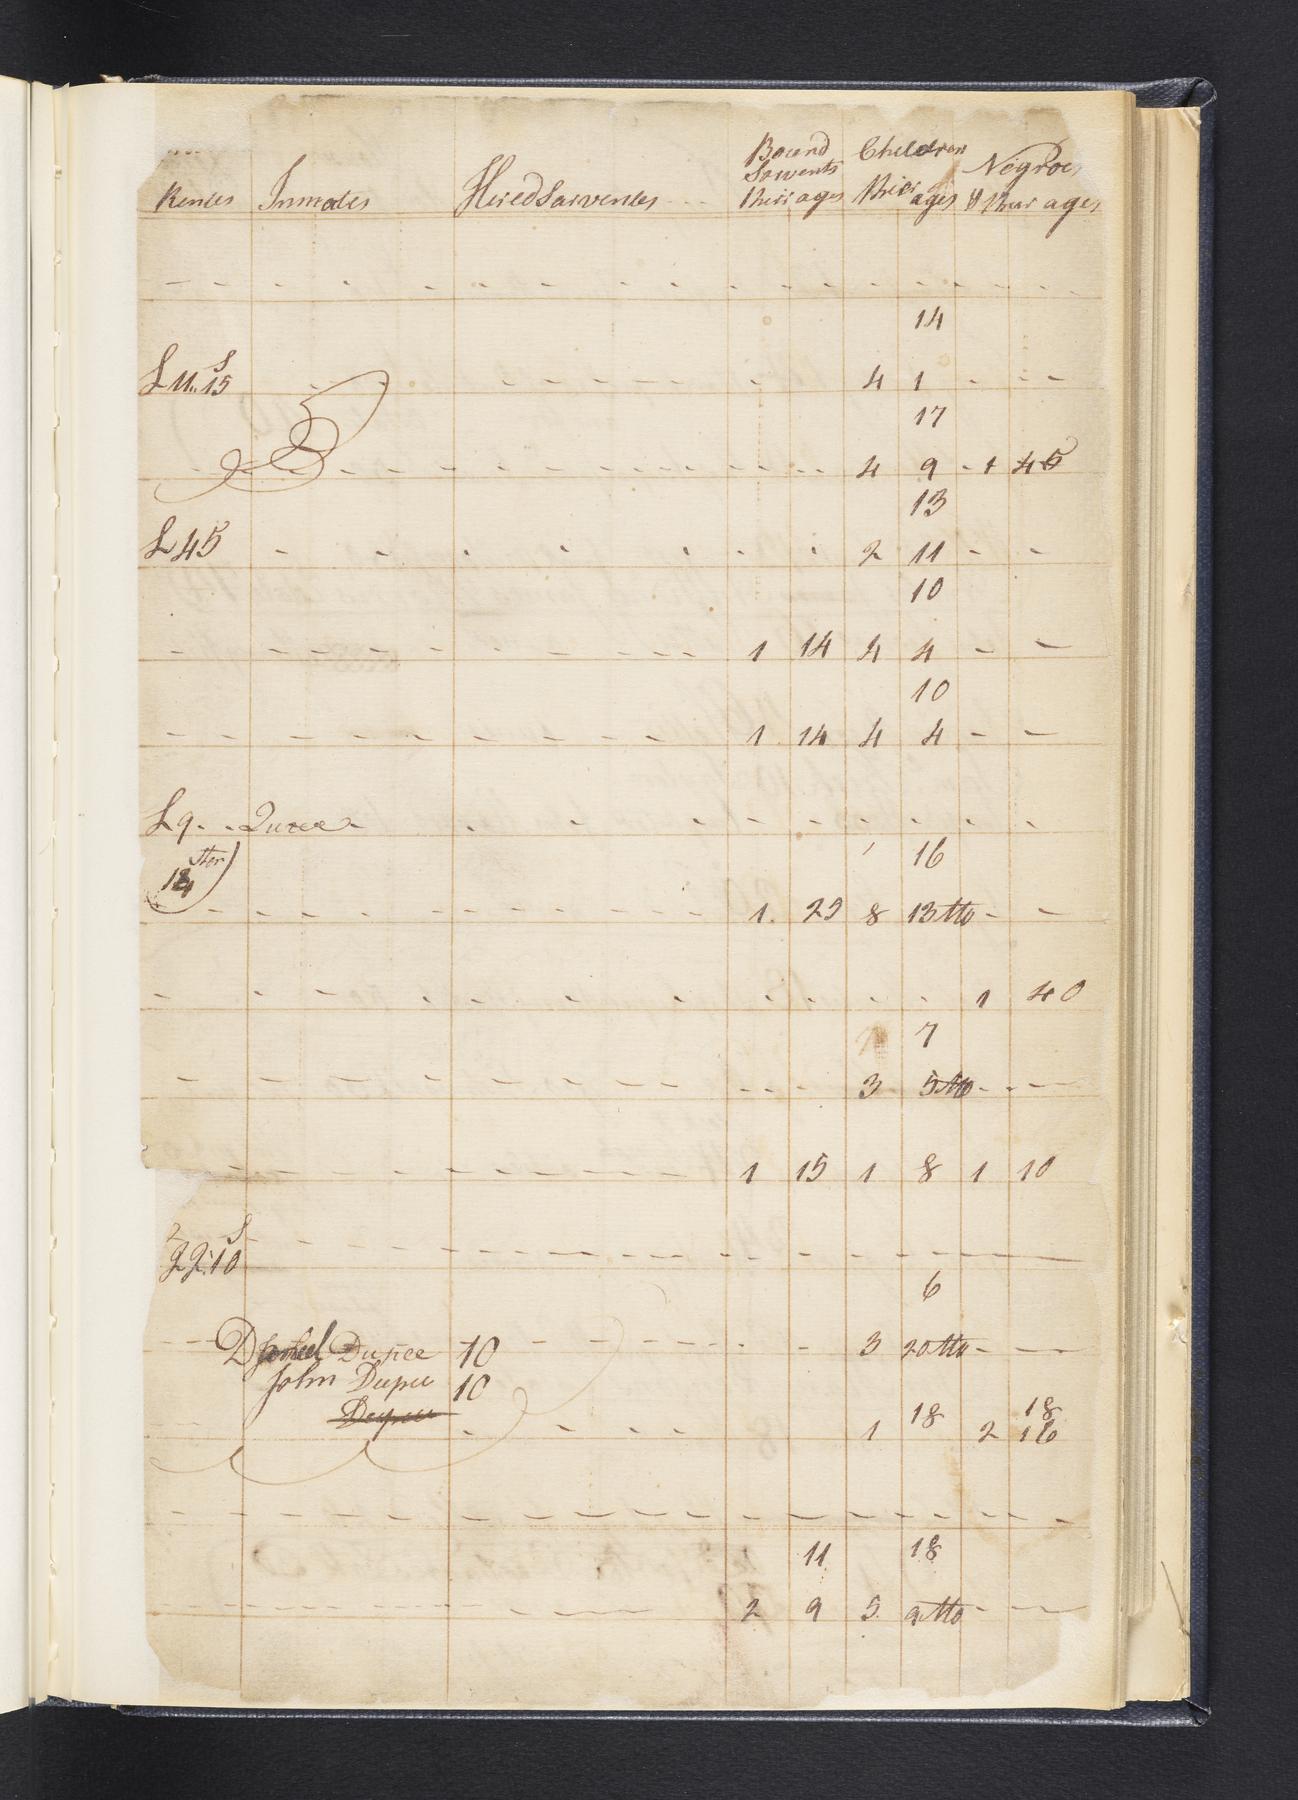 Rentes Inmates Hired Sarventes Bound Sarvents their ages Children their ages Negroes & their ages
14
£ 11.. 15 S 4 1
17
4 9 1 45
13
£ 45 2 11
10
1 14 4 4
10
1 14 4 4
£ 9
16
1 29 8 13 Mo
1 40
7
3 5 Mo
1 15 1 8 1 10
22:10 S
6
Dupee 10 3 20 Mo
John Dupee 10
18 18
1 2 16
11 18
2 9 5 9 Mo